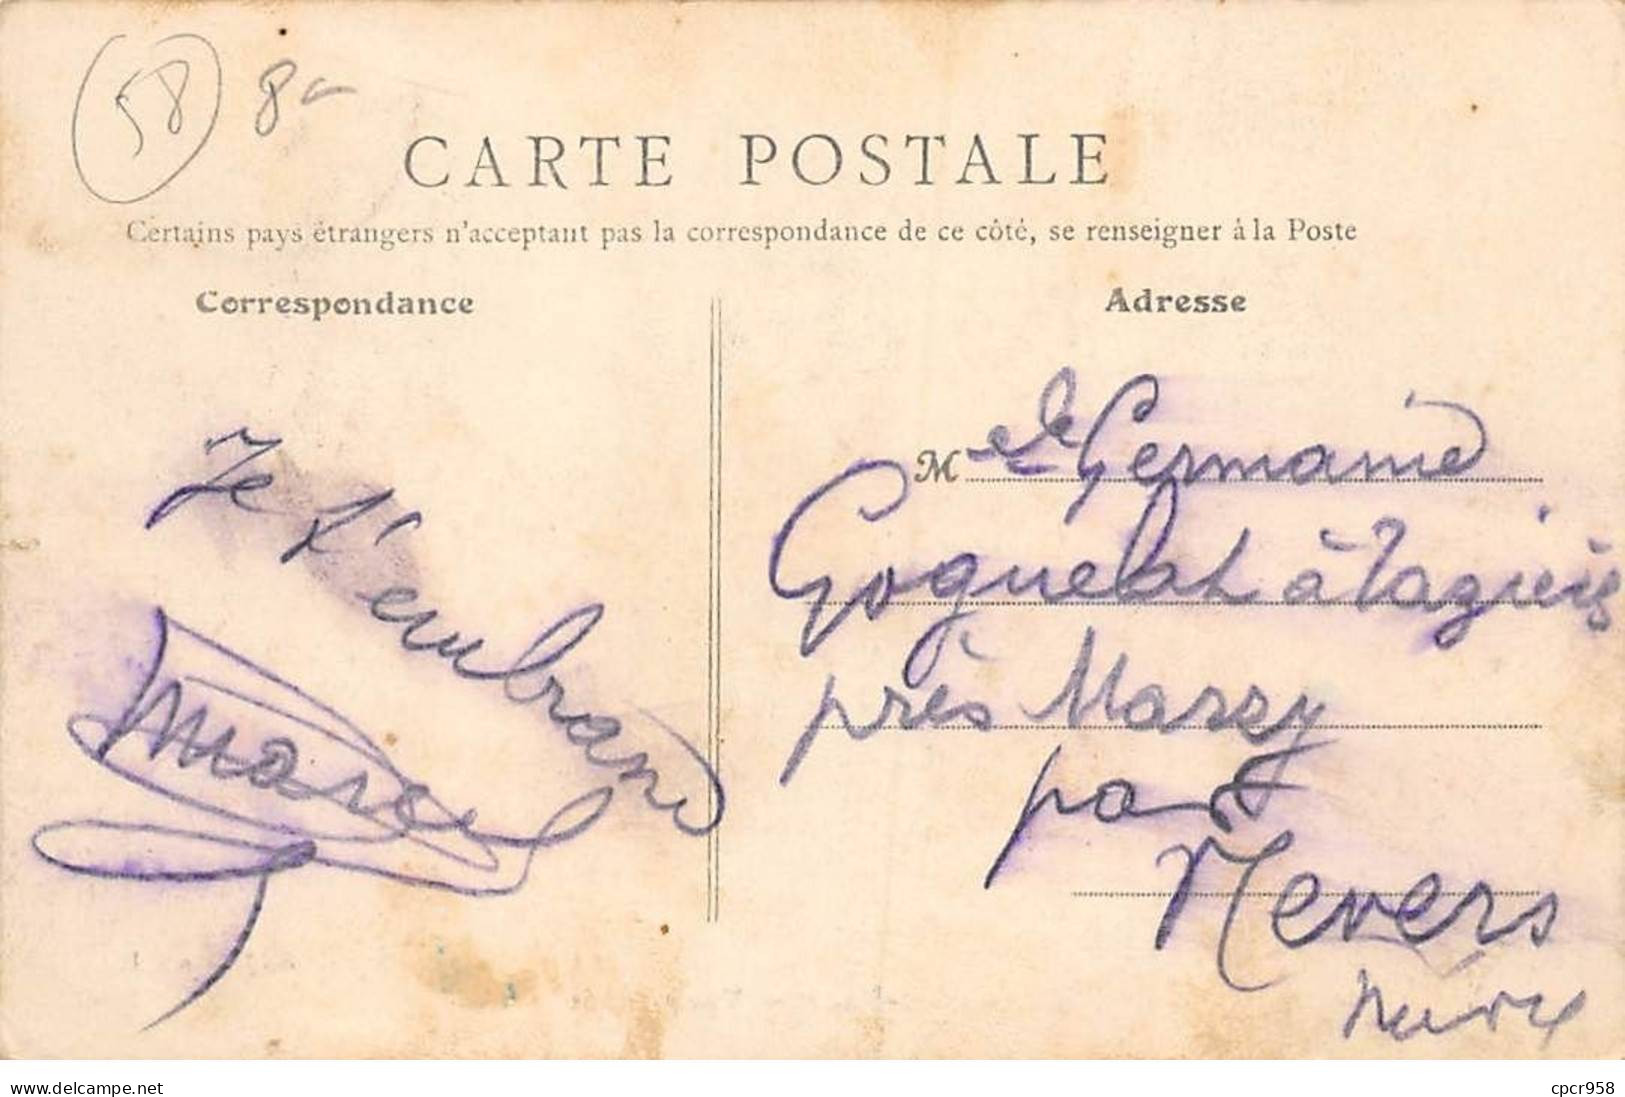 58 8-
CARTE POSTALE
Certains pays étrangers n'acceptant pas la correspondance de ce côté, se renseigner à la Poste
Correspondance
Adresse
Je t'embrasse
Marcel
Melle Germaine
Goguelat à
près Marzy
par
Nevers
Nièvre
www.delcampe.net
cpcr958